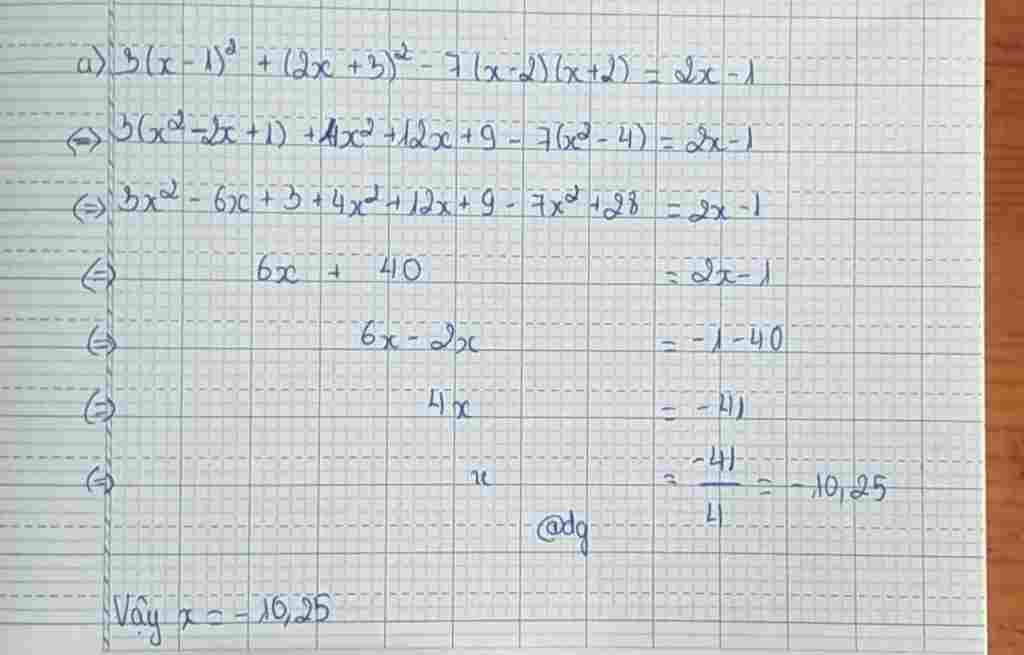 a) 3(x - 1)² + (2x + 3)² - 7(x - 2)(x + 2) = 2x - 1
(=) 3(x² - 2x + 1) + 4x² + 12x + 9 - 7(x² - 4) = 2x - 1
(=) 3x² - 6x + 3 + 4x² + 12x + 9 - 7x² + 28 = 2x - 1
(=) 6x + 40 = 2x - 1
(=) 6x - 2x = -1 - 40
(=) 4x = -41
(=) x = -41/4 = -10,25
@dg
Vậy x = -10,25